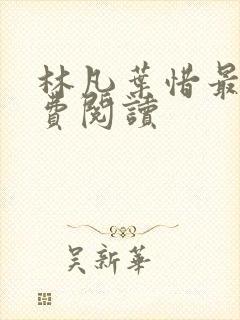 林凡葉惜最
費閱讀
吳新華